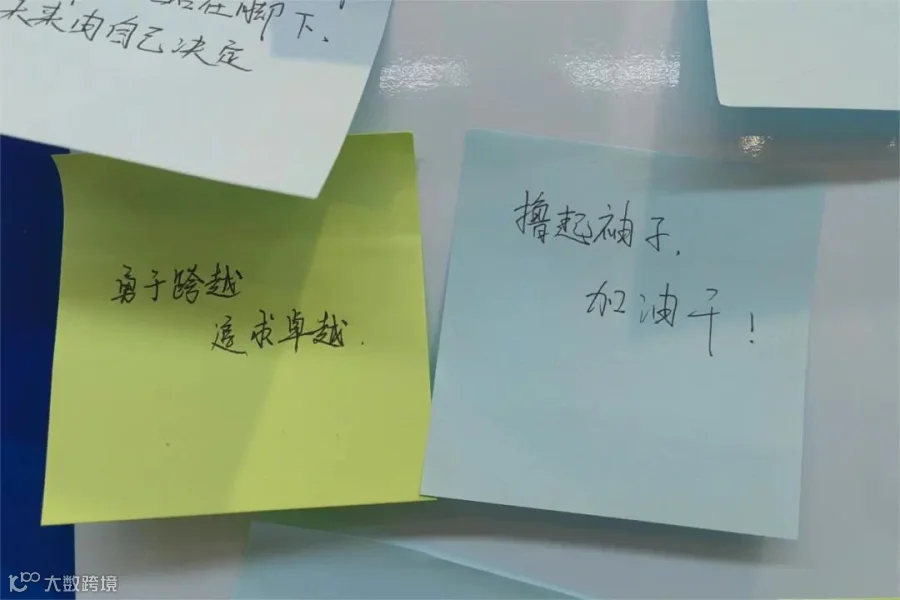 在脚下,
未来由自己决定
勇于跨越
追求卓越.
撸起袖子,
加油干!
大数跨境